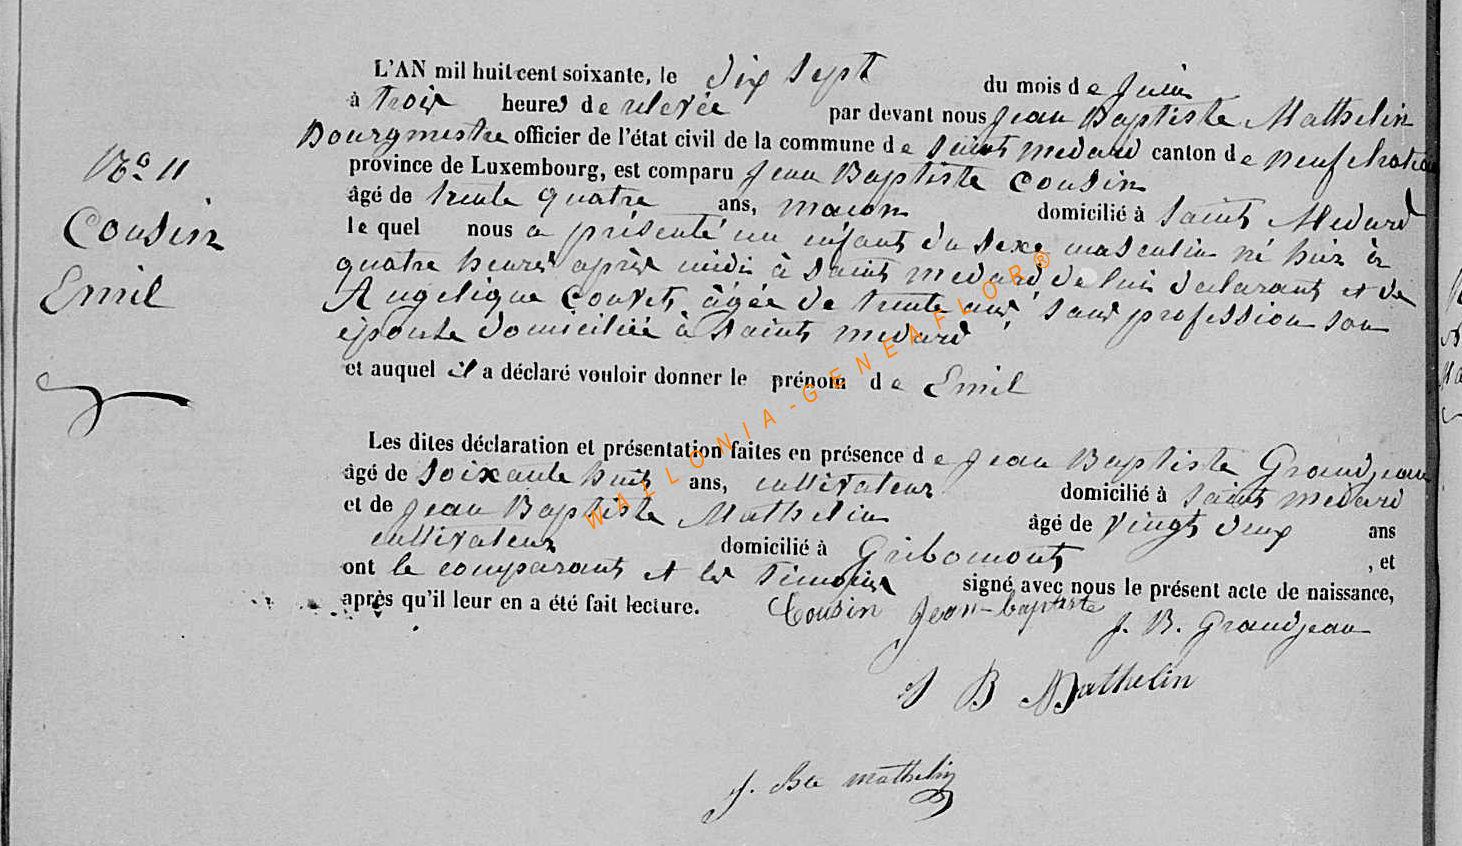 L'AN mil huit cent soixante, le dix sept du mois de Juin
à trois heures de relevée par devant nous Jean Baptiste Mathelin
Bourgmestre officier de l'état civil de la commune de Saint Medard canton de neufchateau
province de Luxembourg, est comparu Jean Baptiste Cousin
âgé de trente quatre ans, macon domicilié à Saint Medard
le quel nous a présenté un enfant du sexe masculin né hier à
quatre heures après midi à Saint medard de lui declarant et de
Angelique Couvet âgée de trente ans sans profession son
épouse domiciliée à Saint medard
et auquel il a déclaré vouloir donner le prénom de Emil
Les dites déclaration et présentation faites en présence de Jean Baptiste Grandjean
âgé de soixante huit ans, cultivateur domicilié à Saint medard
et de Jean Baptiste Mathelin âgé de vingt deux ans
cultivateur domicilié à Gribomont , et
ont le comparant et les témoins signé avec nous le présent acte de naissance,
après qu'il leur en a été fait lecture.
Cousin Jean-baptiste
J. B. Grandjean
J B Mathelin
J. Bte mathelin
No 11
Cousin
Emil
WALLONIA-GENEAFLOR®